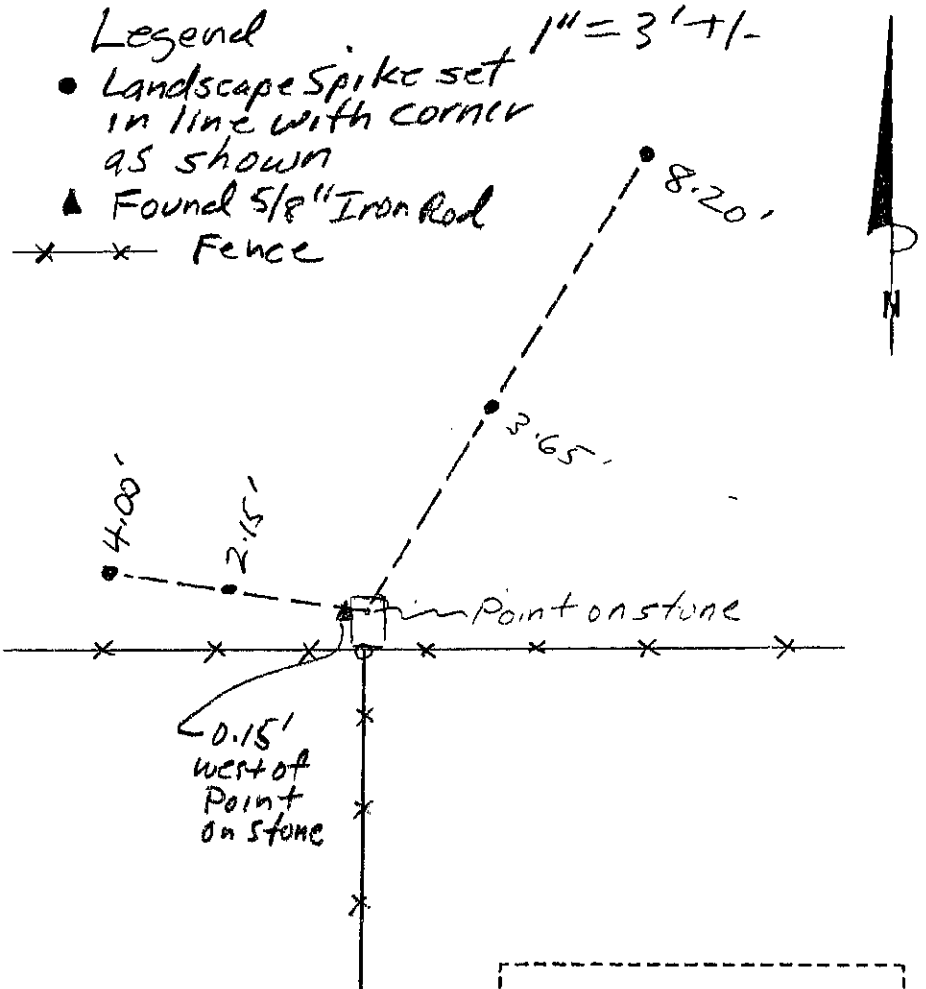 Legend
1" = 3' +/-
Landscape Spike set
in line with corner
as shown
Found 5/8" Iron Rod
Fence
8.20'
N
3.65'
4.00'
2.15'
Point on stone
0.15'
west of
Point
on stone